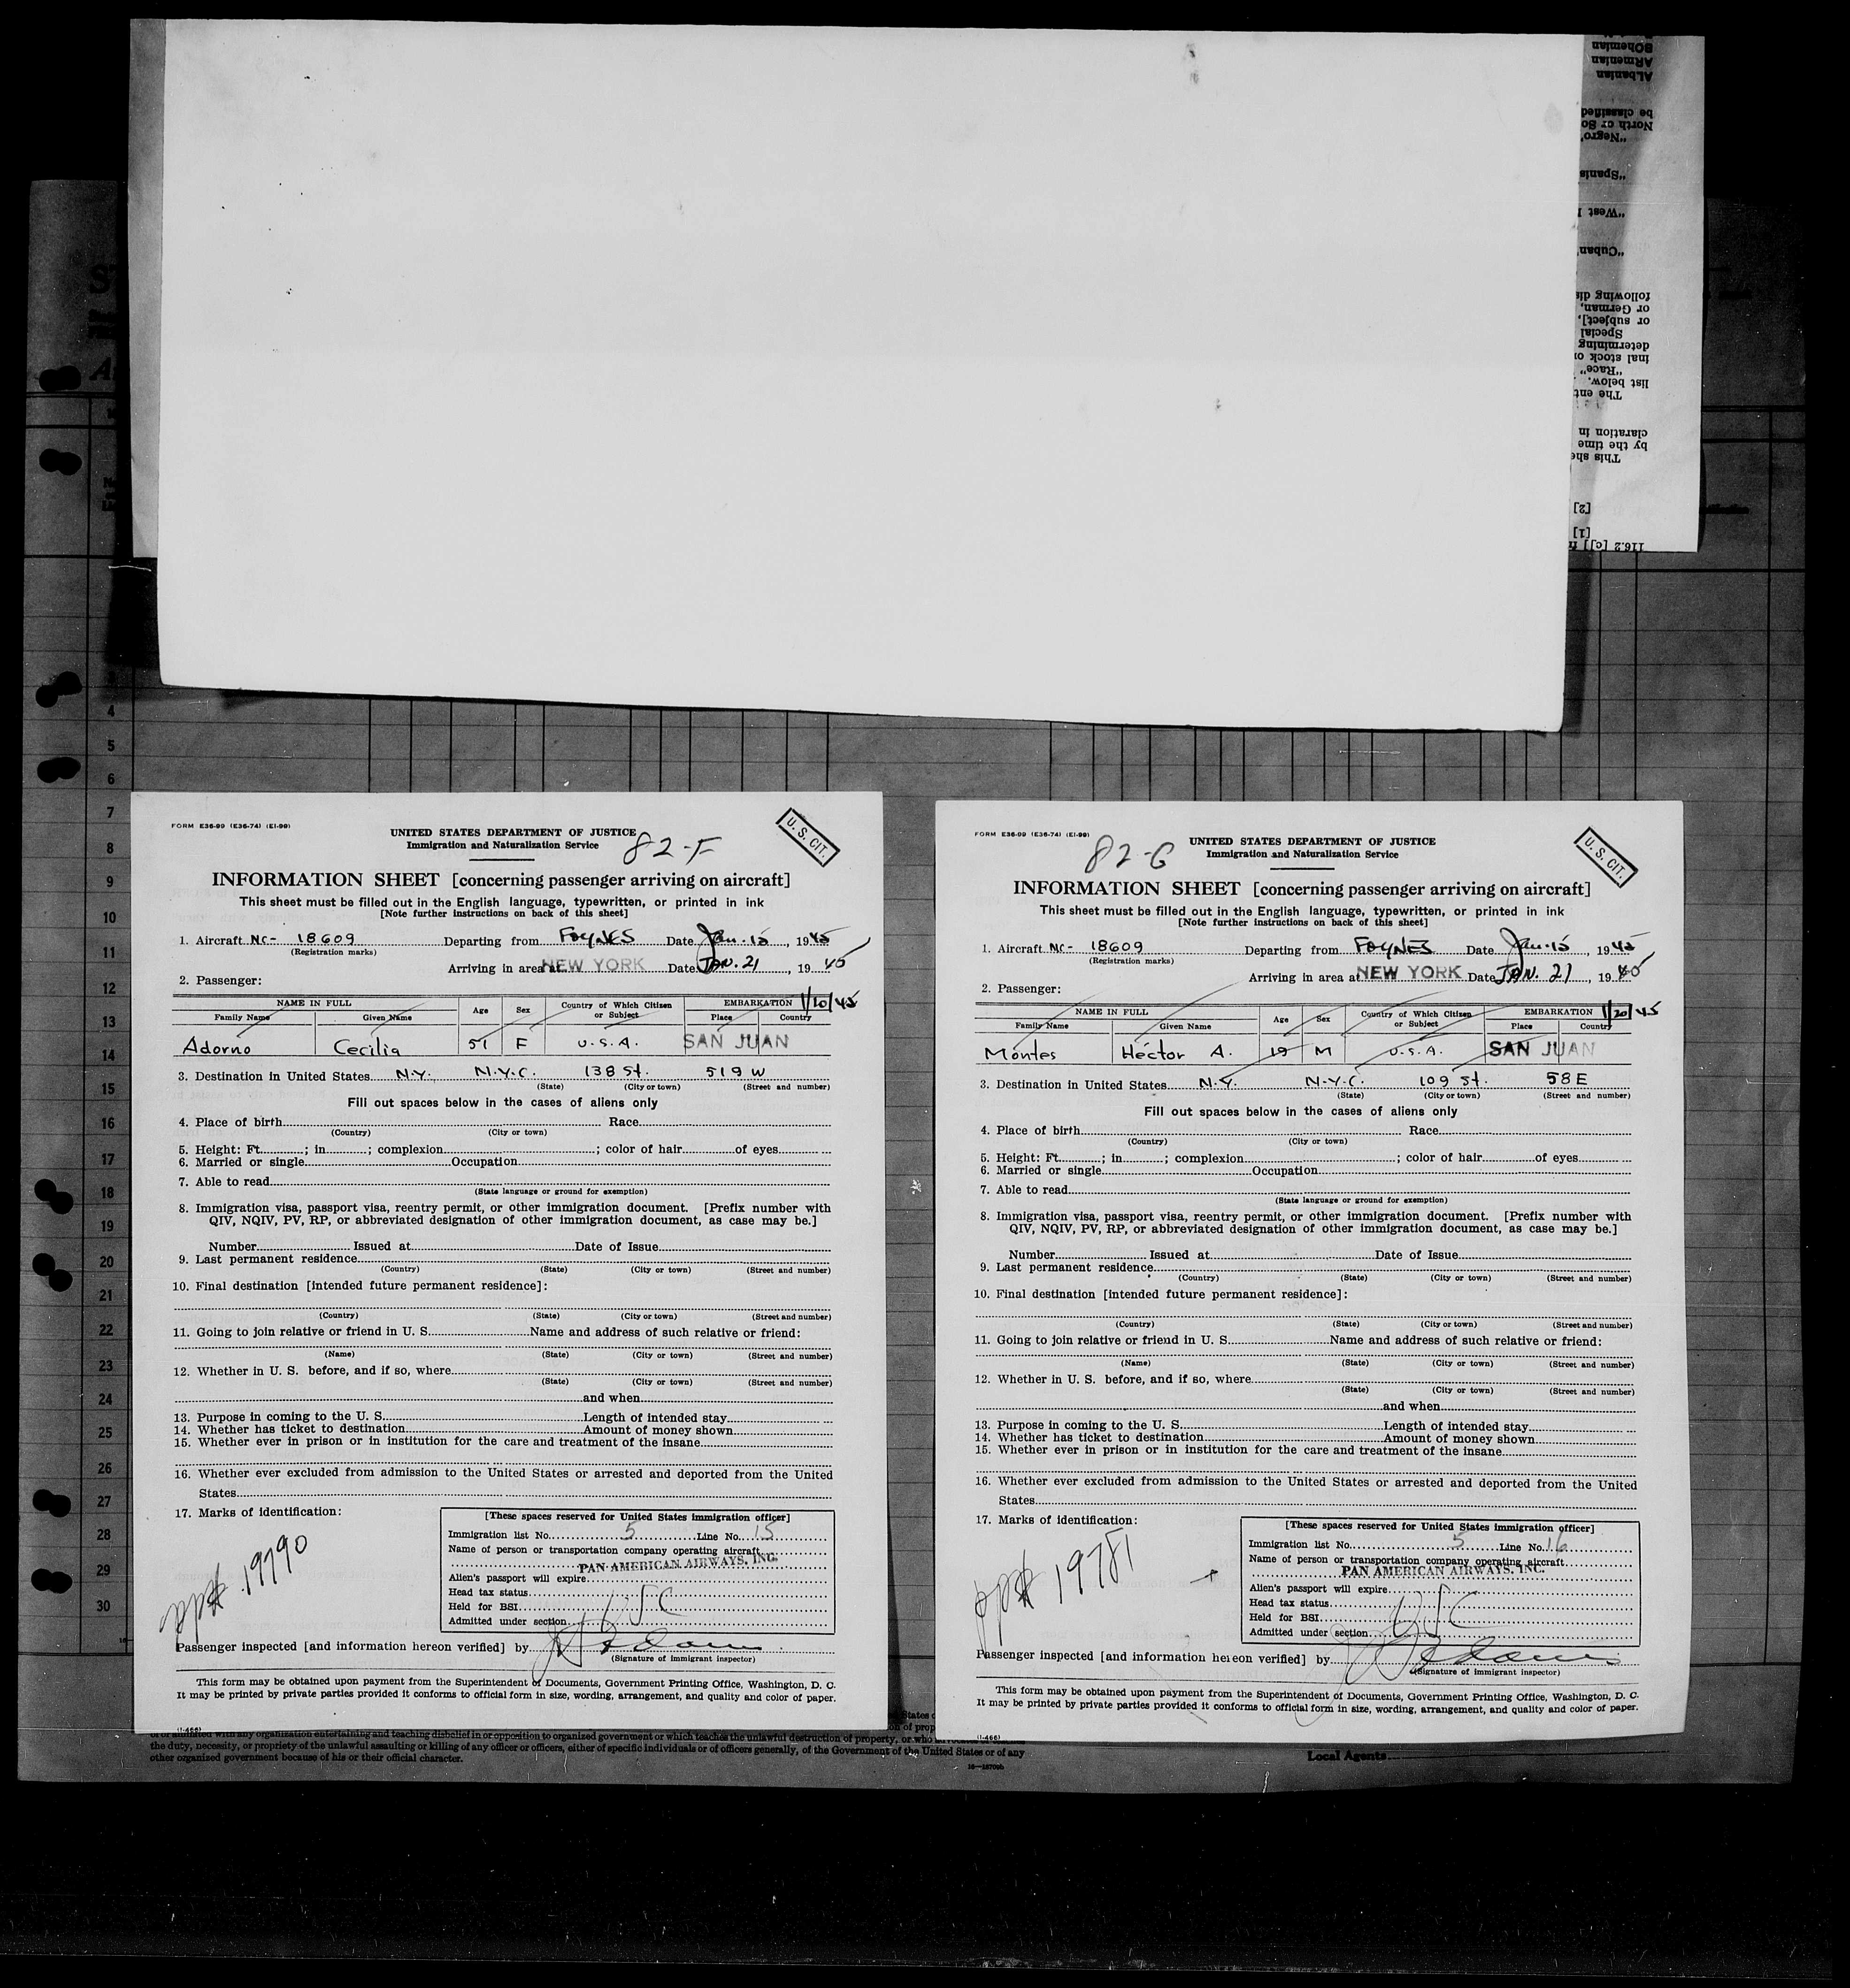 BOhemian
ARmenian
ALbanian
be classified
North or So
"Negro"
"Spanis
"West I
"Cuban"
following dis
or German,
or subject],
Special
determining
inal stock or
"Race"
list below.
The ent
claration in
by the time
This she
[2]
[1]
116.2 [c]]
4
5
6
7
8
9
10
11
12
13
14
15
16
17
18
19
20
21
22
23
24
25
26
27
28
29
30
FORM E36-99 (E36-74) (EI-99)
U. S. CIT.
UNITED STATES DEPARTMENT OF JUSTICE
Immigration and Naturalization Service
82-F
INFORMATION SHEET [concerning passenger arriving on aircraft]
This sheet must be filled out in the English language, typewritten, or printed in ink
[Note further instructions on back of this sheet]
1. Aircraft NC- 18609 Departing from FOYNES Date Jan. 15, 1945
(Registration marks)
Arriving in area at NEW YORK Date JAN. 21, 1945
2. Passenger:
1/10/45
NAME IN FULL Age Sex Country of Which Citizen or Subject EMBARKATION
Family Name Given Name Place Country
Adorno Cecilia 51 F U.S.A. SAN JUAN
3. Destination in United States N.Y. N.Y.C. 138 St. 519 W
(State) (City or town) (Street and number)
Fill out spaces below in the cases of aliens only
4. Place of birth Race
(Country) (City or town)
5. Height: Ft. ; in ; complexion ; color of hair of eyes
6. Married or single Occupation
7. Able to read
(State language or ground for exemption)
8. Immigration visa, passport visa, reentry permit, or other immigration document. [Prefix number with
QIV, NQIV, PV, RP, or abbreviated designation of other immigration document, as case may be.]
Number Issued at Date of Issue
9. Last permanent residence
(Country) (State) (City or town) (Street and number)
10. Final destination [intended future permanent residence]:
(Country) (State) (City or town) (Street and number)
11. Going to join relative or friend in U. S. Name and address of such relative or friend:
(Name) (State) (City or town) (Street and number)
12. Whether in U. S. before, and if so, where
(State) (City or town) (Street and number)
and when
13. Purpose in coming to the U. S. Length of intended stay
14. Whether has ticket to destination Amount of money shown
15. Whether ever in prison or in institution for the care and treatment of the insane
16. Whether ever excluded from admission to the United States or arrested and deported from the United
States
17. Marks of identification:
19790
[These spaces reserved for United States immigration officer]
Immigration list No. 5 Line No. 15
Name of person or transportation company operating aircraft
PAN AMERICAN AIRWAYS, INC.
Alien's passport will expire
Head tax status
Held for BSI USC
Admitted under section
Passenger inspected [and information hereon verified] by
(Signature of immigrant inspector)
This form may be obtained upon payment from the Superintendent of Documents, Government Printing Office, Washington, D. C.
It may be printed by private parties provided it conforms to official form in size, wording, arrangement, and quality and color of paper.
(I-466)
FORM E36-99 (E36-74) (EI-99)
U. S. CIT.
82-G
UNITED STATES DEPARTMENT OF JUSTICE
Immigration and Naturalization Service
INFORMATION SHEET [concerning passenger arriving on aircraft]
This sheet must be filled out in the English language, typewritten, or printed in ink
[Note further instructions on back of this sheet]
1. Aircraft NC- 18609 Departing from FOYNES Date Jan. 15, 1945
(Registration marks)
Arriving in area at NEW YORK Date JAN. 21, 1945
2. Passenger:
1/20/45
NAME IN FULL Age Sex Country of Which Citizen or Subject EMBARKATION
Family Name Given Name Place Country
Montes Héctor A. 19 M U.S.A. SAN JUAN
3. Destination in United States N.Y. N.Y.C. 109 St. 58 E
(State) (City or town) (Street and number)
Fill out spaces below in the cases of aliens only
4. Place of birth Race
(Country) (City or town)
5. Height: Ft. ; in ; complexion ; color of hair of eyes
6. Married or single Occupation
7. Able to read
(State language or ground for exemption)
8. Immigration visa, passport visa, reentry permit, or other immigration document. [Prefix number with
QIV, NQIV, PV, RP, or abbreviated designation of other immigration document, as case may be.]
Number Issued at Date of Issue
9. Last permanent residence
(Country) (State) (City or town) (Street and number)
10. Final destination [intended future permanent residence]:
(Country) (State) (City or town) (Street and number)
11. Going to join relative or friend in U. S. Name and address of such relative or friend:
(Name) (State) (City or town) (Street and number)
12. Whether in U. S. before, and if so, where
(State) (City or town) (Street and number)
and when
13. Purpose in coming to the U. S. Length of intended stay
14. Whether has ticket to destination Amount of money shown
15. Whether ever in prison or in institution for the care and treatment of the insane
16. Whether ever excluded from admission to the United States or arrested and deported from the United
States
17. Marks of identification:
19781
[These spaces reserved for United States immigration officer]
Immigration list No. 5 Line No. 16
Name of person or transportation company operating aircraft
PAN AMERICAN AIRWAYS, INC.
Alien's passport will expire
Head tax status
Held for BSI USC
Admitted under section
Passenger inspected [and information hereon verified] by
(Signature of immigrant inspector)
This form may be obtained upon payment from the Superintendent of Documents, Government Printing Office, Washington, D. C.
It may be printed by private parties provided it conforms to official form in size, wording, arrangement, and quality and color of paper.
(I-466)
with any organization entertaining and teaching disbelief in or opposition to organized government or which teaches the unlawful destruction of property, or who
the duty, necessity, or propriety of the unlawful assaulting or killing of any officer or officers, either of specific individuals or of officers generally, of the Government of the United States or of any
other organized government because of his or their official character.
Local Agents